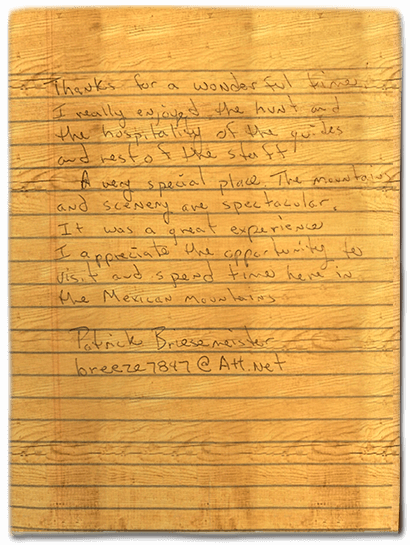 Thanks for a wonderful time.
I really enjoyed the hunt and
the hospitality of the guides
and rest of the staff
A very special place. The mountains
and scenery are spectacular.
It was a great experience
I appreciate the opportunity to
visit and spend time here in
the Mexican Mountains
Patrick Briesemeister
breeze7847@Att.net